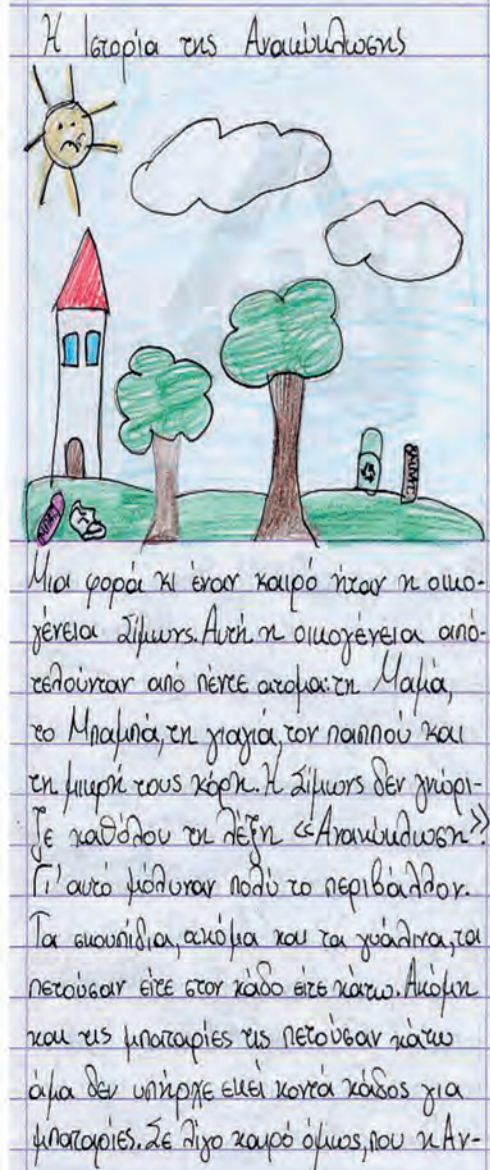 Η Ιστορία της Ανακύκλωσης
Μια φορά κι έναν καιρό ήταν η οικο-
γένεια Σίμωνς. Αυτή η οικογένεια απο-
τελούνταν από πέντε άτομα: τη Μαμά,
το Μπαμπά, τη γιαγιά, τον παππού και
τη μικρή τους κόρη. Η Σίμωνς δεν γνώρι-
ζε καθόλου τη λέξη «Ανακύκλωση».
Γι' αυτό μόλυναν πολύ το περιβάλλον.
Τα σκουπίδια, ακόμα και τα γυάλινα, τα
πετούσαν είτε στον κάδο είτε κάτω. Ακόμη
και τις μπαταρίες τις πετούσαν κάτω
άμα δεν υπήρχε εκεί κοντά κάδος για
μπαταρίες. Σε λίγο καιρό όμως, που η Αν-